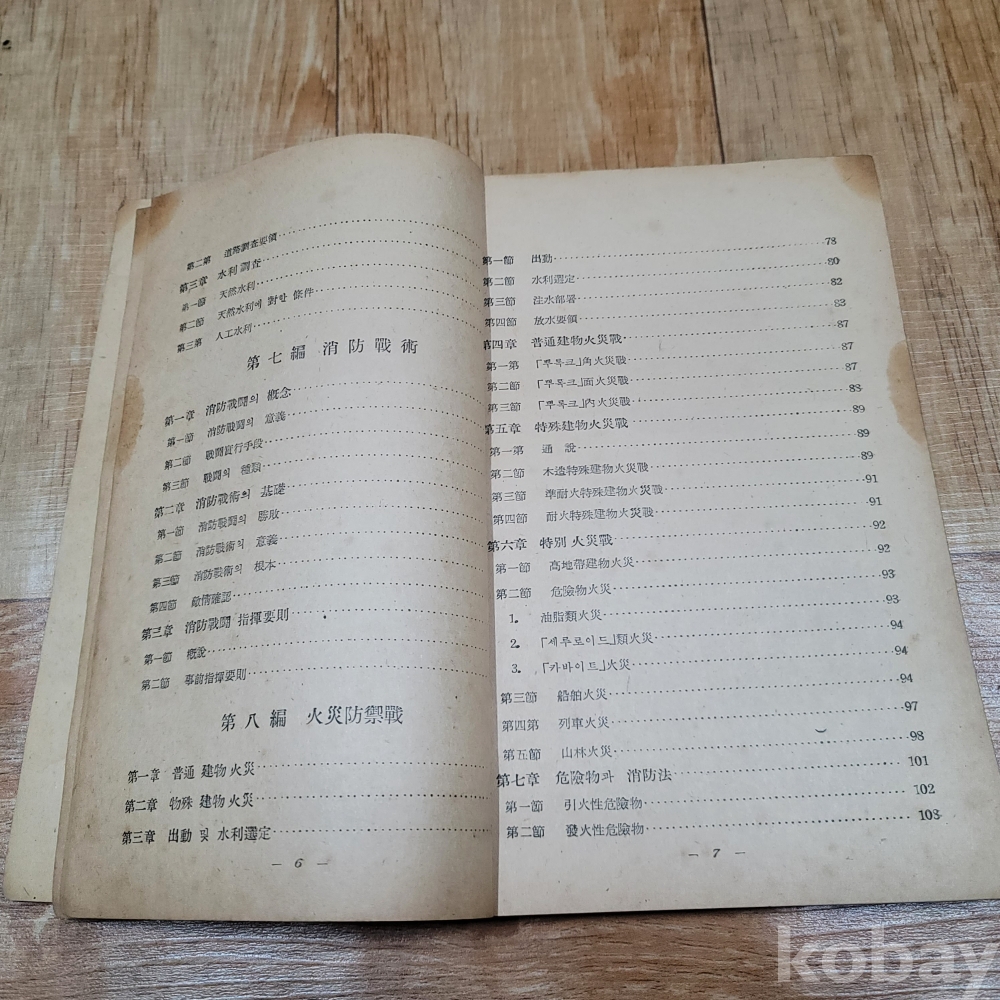 第二第 道路調査要領
第三章 水利 調査
第一節 天然水利
第二節 天然水利에 對한 條件
第三第 人工水利
第七編 消防戰術
第一章 消防戰鬪의 槪念
第一節 消防戰鬪의 意義
第二節 戰鬪實行手段
第三節 戰鬪의 種類
第二章 消防戰術의 基礎
第一節 消防戰鬪의 勝敗
第二節 消防戰術의 意義
第三節 消防戰術의 根本
第四節 敵情確認
第三章 消防戰鬪 指揮要則
第一節 槪說
第二節 事前指揮要則
第八編 火災防禦戰
第一章 普通 建物 火災
第二章 物殊 建物 火災
第三章 出動 및 水利選定
— 6 —
第一節 出動 78
第二節 水利選定 80
第三節 注水部署 82
第四節 放水要領 83
第四章 普通建物火災戰 87
第一第 「뿌록크」角火災戰 87
第二節 「뿌록크」面火災戰 87
第三節 「뿌록크」內火災戰 88
第五章 特殊建物火災戰 89
第一第 通 說 89
第二節 木造特殊建物火災戰 89
第三節 準耐火特殊建物火災戰 91
第四節 耐火特殊建物火災戰 91
第六章 特別 火災戰 92
第一節 高地帶建物火災 92
第二節 危險物火災 93
1. 油脂類火災 93
2. 「세루로이드」類火災 94
3. 「카바이드」火災 94
第三節 船舶火災 94
第四第 列車火災 97
第五節 山林火災 98
第七章 危險物과 消防法 101
第一節 引火性危險物 102
第二節 發火性危險物 103
— 7 —
kobay